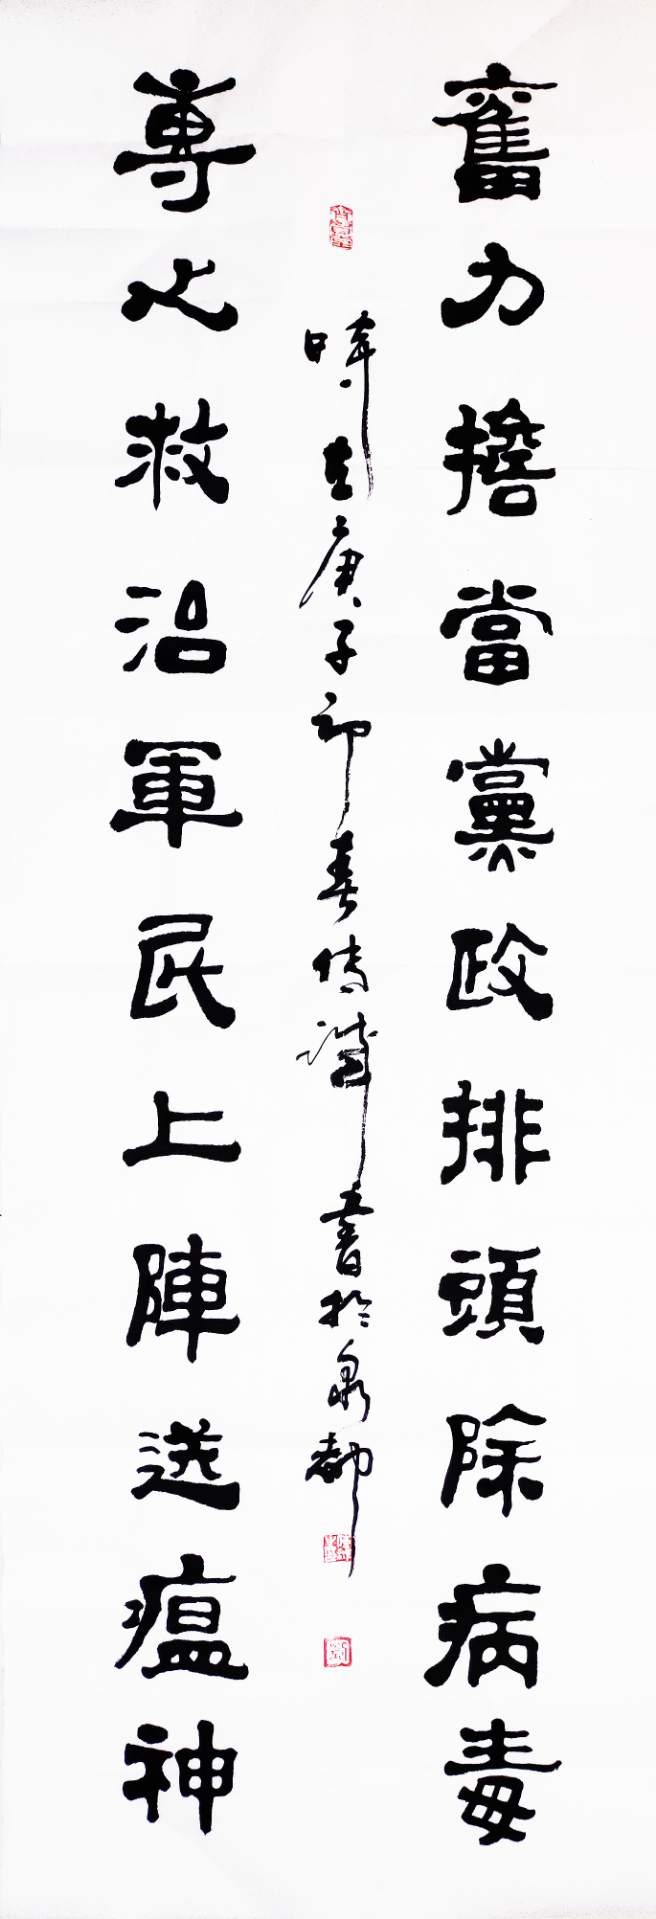 奮力擔當黨政排頭除病毒
時在庚子初春傳濤書於泉都
專心救治軍民上陣送瘟神